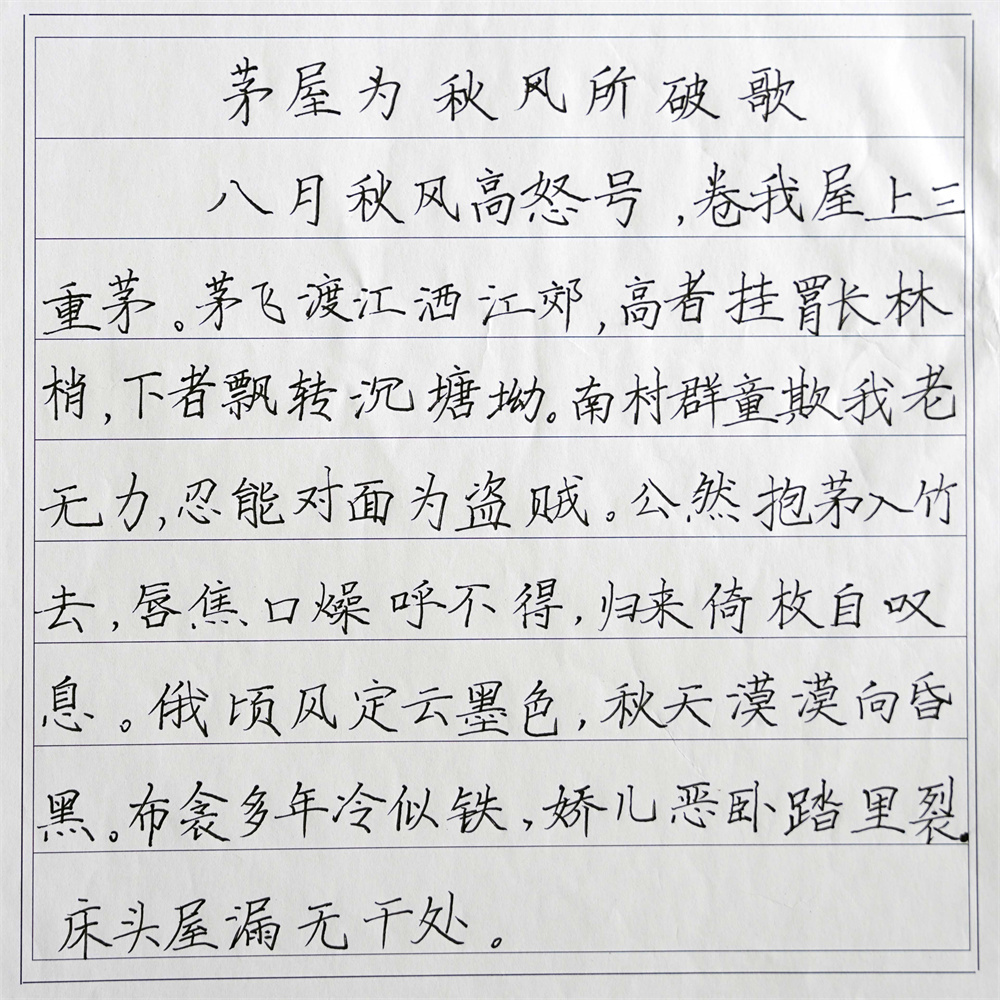 茅屋为秋风所破歌
八月秋风高怒号,卷我屋上三
重茅。茅飞渡江洒江郊,高者挂罥长林
梢,下者飘转沉塘坳。南村群童欺我老
无力,忍能对面为盗贼。公然抱茅入竹
去,唇焦口燥呼不得,归来倚枚自叹
息。俄顷风定云墨色,秋天漠漠向昏
黑。布衾多年冷似铁,娇儿恶卧踏里裂.
床头屋漏无干处。